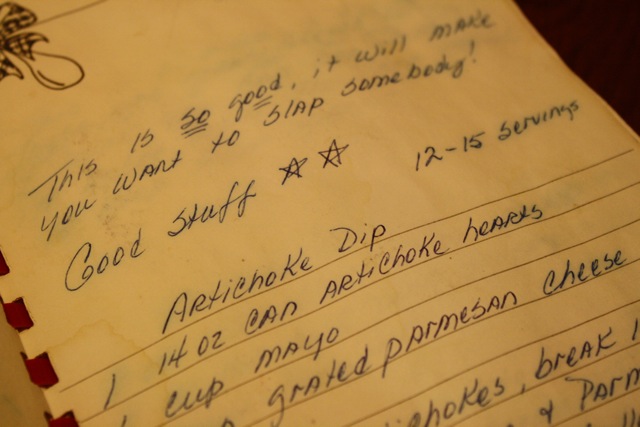 This is so good, it will make
you want to slap somebody!
Good stuff ☆ ☆ 12-15 servings
Artichoke Dip
1 14 oz can artichoke hearts
1 cup mayo
grated parmesan cheese
break
& Parm